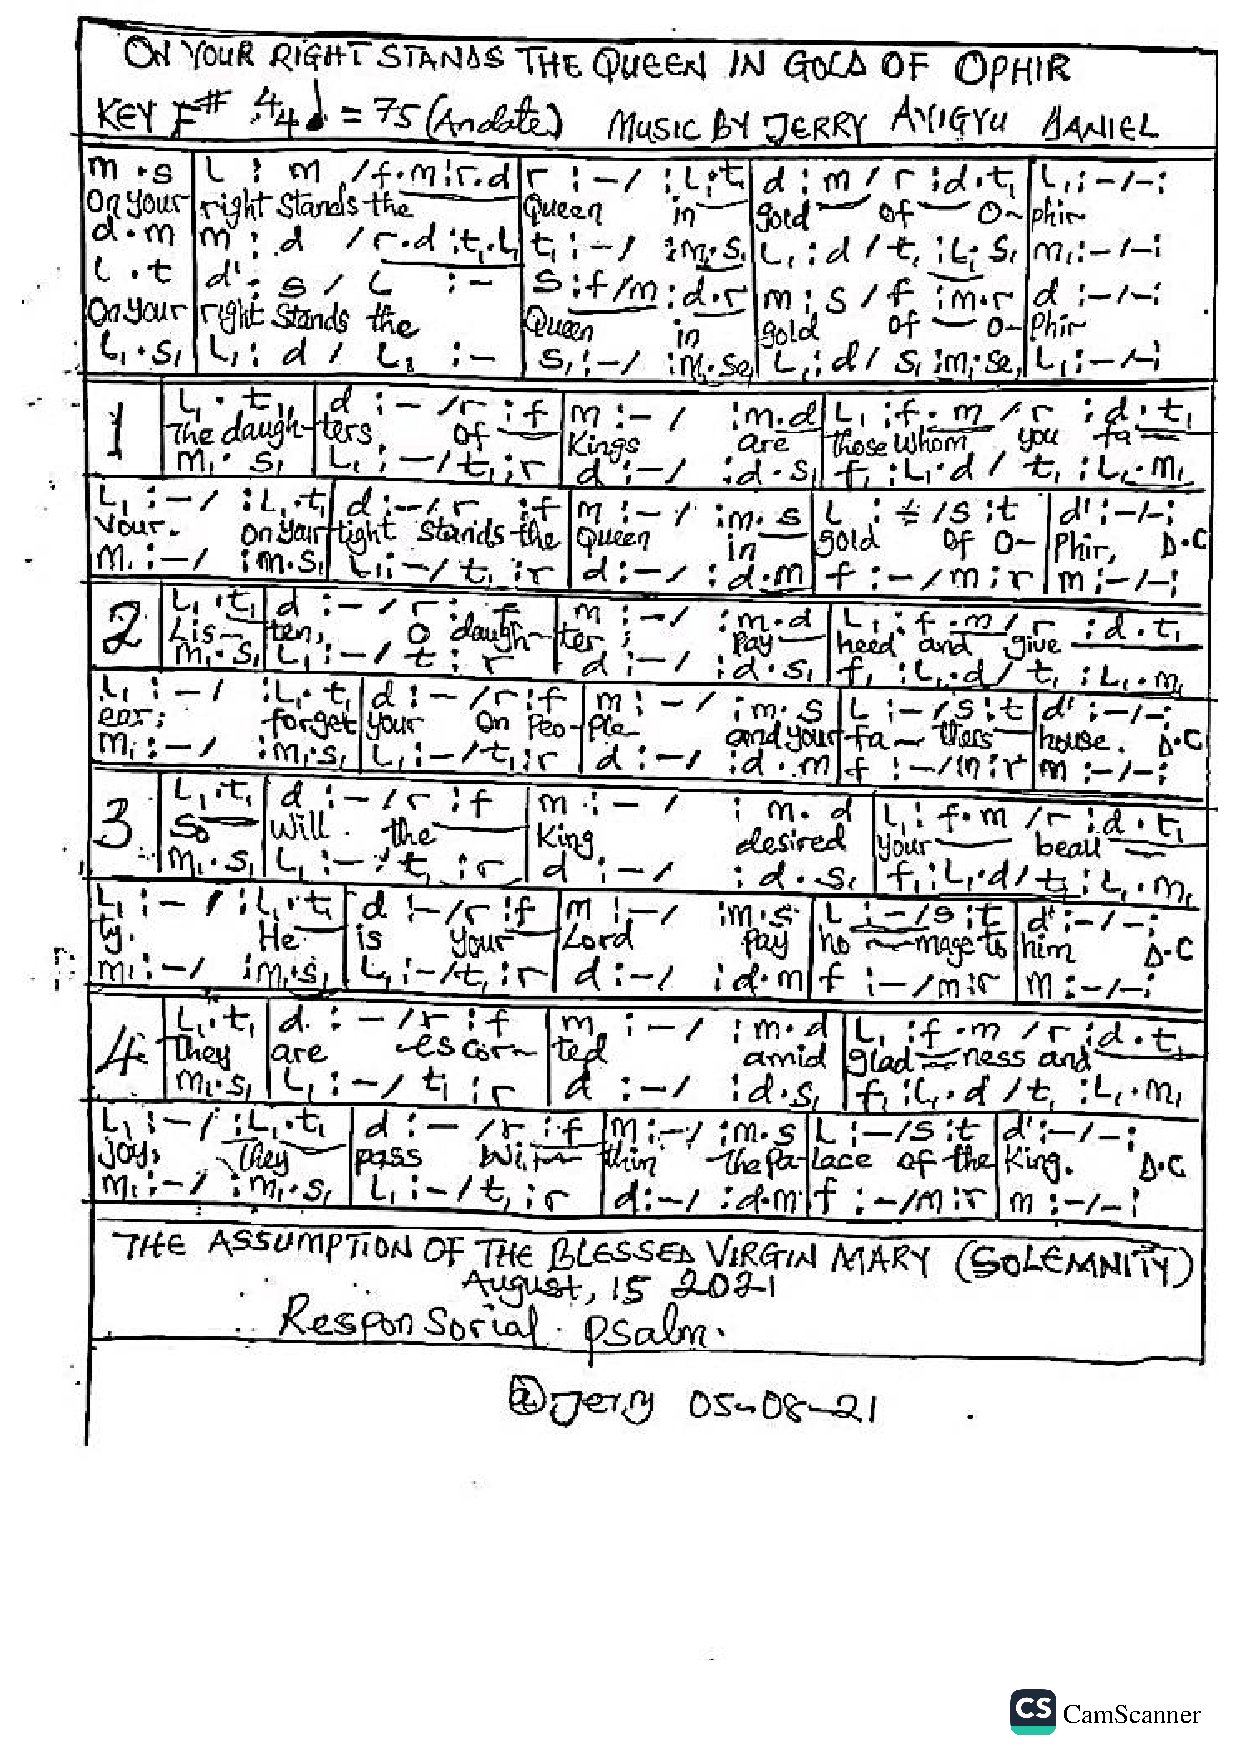 ON YOUR RIGHT STANDS THE QUEEN IN GOLD OF OPHIR
KEY F# 4/4 ♩ = 75 (Andate) MUSIC BY JERRY AYIGYU DANIEL
m .s | L : m /f.m:r.d | r :-/ :L₁.t₁ | d : m / r :d.t₁ | L₁:-/-:
On your | right Stands the | Queen in | gold of O~ | phir
d.m | m : d / r.d :t₁.L₁ | t₁ :-/ :m₁.s₁ | L₁ :d / t₁ :L₁.S₁ | m₁:-/-:
L .t | d' : s / L :- | S :f/m :d.r | m : s / f :m.r | d :-/-:
On your | right Stands the | Queen in | gold of O- | Phir
L₁.S₁ | L₁ : d / L₁ :- | S₁:-/ :m₁.se₁ | L₁:d/ S₁ :m₁.se₁ | L₁:-/-:
1 | L₁.t₁ | d :-/r :f | m :-/ :m.d | L₁ :f.m / r :d.t₁
The daugh- | ters of | Kings are | those whom you fa
m₁.s₁ | L₁ :-/t₁:r | d :-/ :d.s₁ | f₁ :L₁.d / t₁ :L₁.m₁
L₁ :-/ :L₁.t₁ | d :-/ r :f | m :-/ :m.s | L :-/s :t | d' :-/-:
Vour. On your | right Stands the | Queen in | gold of O- | Phir, D.C
m₁ :-/ :m.s₁ | L₁:-/t₁:r | d :-/ :d.m | f :-/m:r | m :-/-:
2 | L₁.t₁ | d :-/ r : f | m :-/ :m.d | L₁ :f.m / r :d.t₁
Lis- | ten, O daugh- | ter ; Pay | heed and give
m₁.s₁ | L₁ :-/ t : r | d :-/ :d.s₁ | f₁ :L₁.d/ t₁ :L₁.m₁
L₁ :-/ :L₁.t₁ | d :-/r:f | m :-/ :m.s | L :-/s:t | d' :-/-:
ear; forget | your on Peo- | Ple and your | fa~ thers | house. D.C
m₁ :-/ :m₁.s₁ | L₁ :-/t₁:r | d :-/ :d.m | f :-/m:r | m :-/-:
3 | L₁.t₁ | d :-/r :f | m :-/ : m.d | L₁: f.m / r :d.t₁
So | will the | King desired | your beau
m₁.s₁ | L₁ :-/ t₁ :r | d :-/ :d.s₁ | f₁:L₁.d/ t₁ :L₁.m₁
L₁ :-/ :L₁.t₁ | d :-/r :f | m :-/ :m.s | L :-/s :t | d' :-/-:
ty. He | is your | Lord Pay | ho~mage to | him D.C
m₁ :-/ :m₁.s₁ | L₁ :-/t₁ :r | d :-/ :d.m | f :-/m:r | m :-/-:
4 | L₁.t₁ | d :-/r :f | m :-/ :m.d | L₁ :f.m / r :d.t₁
They | are escor~ | ted amid | glad ness and
m₁.s₁ | L₁ :-/ t₁ :r | d :-/ :d.s₁ | f₁ :L₁.d / t₁ :L₁.m₁
L₁ :-/ :L₁.t₁ | d :-/r :f | m:-/ :m.s | L :-/s :t | d' :-/-:
Joy, They | pass Wi | thin the Pa- | lace of the | King. D.C
m₁ :-/ :m₁.s₁ | L₁ :-/ t₁ :r | d:-/ :d.m | f :-/m:r | m :-/-:
THE ASSUMPTION OF THE BLESSED VIRGIN MARY (SOLEMNITY)
August, 15 2021
Responsorial Psalm.
@Jerry 05-08-21
CS CamScanner